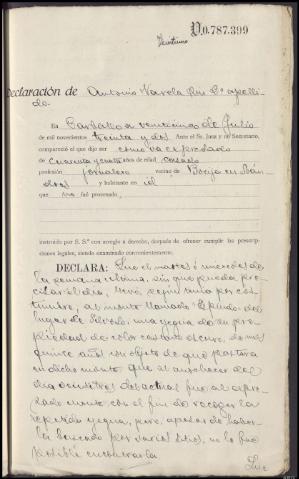 D.0.787.399
Veintiuno
Declaración de Antonio Varela Rus 2º apelli-
do.
En Carballo a veintiuno de Julio
de mil novecientos treinta y dos Ante el Sr. Juez y de Secretario,
compareció el que dijo ser como va expresado
de cuarenta y cuatro años de edad, casado
profesión jornalero vecino de
y habitante en id
que no fué procesado,
instruído por S. Sª con arreglo a derecho, después de ofrecer cumplir las prescrip-
ciones legales, siendo examinado convenientemente.
DECLARA: Que el martes ó miércoles de
la semana última, sin que pueda pre-
cisar el día, llevó según tenía por cos-
tumbre, al monte llamado del
lugar de una yegua de su pro-
piedad de color castaño oscuro, de unos
quince años con objeto de que pastara
en dicho monte que al anochecer del
día de los actuales fué al expre-
sado monte con el fin de recoger la
referida yegua, pero, apesar de haber-
la buscado por varios sitios, no le fué
posible encontrarla
Que